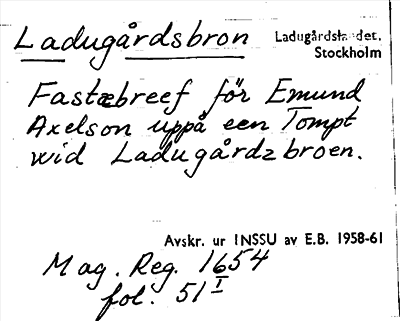 Ladugårdsbron
Ladugårdslandet,
Stockholm
Fastæbreef för Emund
Axelson uppå een Tompt
wid Ladugårdzbroen.
Avskr. ur INSSU av E.B. 1958-61
Mag. Reg. 1654
fol. 51 I